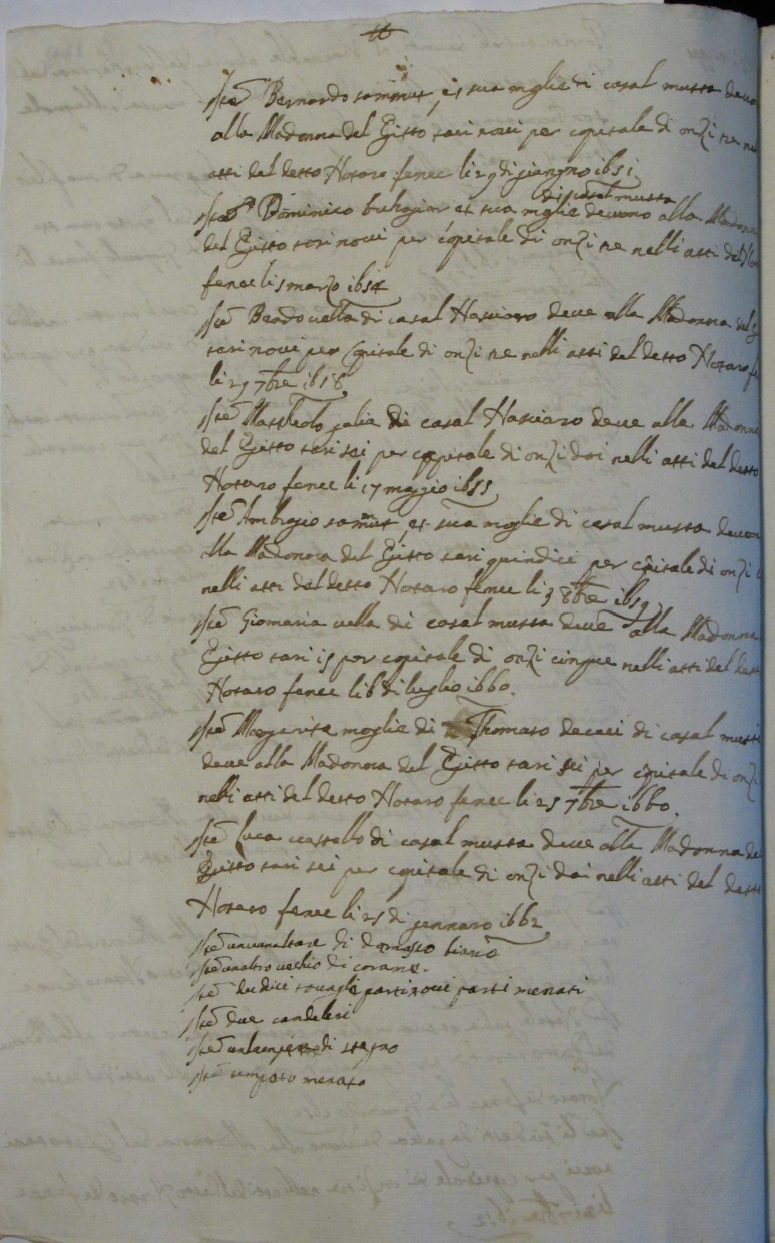 Itē Bernardo sammut, et sua moglie di casal mussa deuon
alla Madonna del Gisso tari noui per capitale di onzi tre ne
atti del detto Notaro fenec li 29 di giungno 1651
di casal mussa
Itē Dominico buhagiar et sua moglie deuono alla Madonna
del Gisso tari noui per capitale di onzi tre nelli atti del No
fenec li 5 marzo 1654
Itē Bendo vella di casal Nasciaro deue alla Madonna del G
tari noui per capitale di onzi tre nelli atti del detto Notaro fe
li 29 7bre 1658
Itē Mattheolo galia di casal Nasciaro deue alla Madonna
del Gisso tari sei per capitale di onzi doi nelli atti del detto
Notaro fenec li 17 maggio 1655
Itē Ambrogio samut, et sua moglie di casal mussa deuon
alla Madonna del Gisso tari quindici per capitale di onzi
nelli atti del detto Notaro fenec li 9 8bre 1659
Itē Giomaria vella di casal mussa deue alla Madonna
Gisso tari 15 per capitale di onzi cinque nelli atti del dett
Notaro fenec li 6 di luglio 1660.
Itē Margarita moglie di Thomaso de caci di casal mussa
deue alla Madonna del Gisso tari sei per capitale di onzi
nelli atti del detto Notaro fenec li 25 7bre 1660.
Itē Luca castallo di casal mussa deue alla Madonna de
Gisso tari sei per capitale di onzi doi nelli atti del dett
Notaro fenec li 25 di gennaro 1662
Itē un uanaltare di damasco bianco
Itē un altro vechio di corame.
Itē dudici touagli parti noui parti menati
Itē due candeleri
Itē un lampiere di stagno
Itē menato